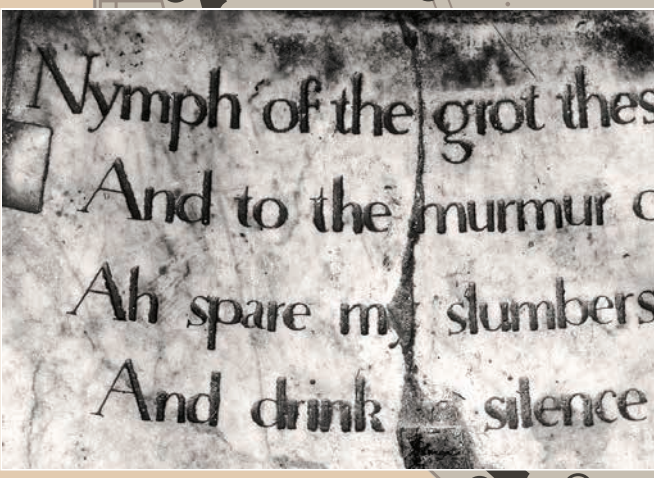 Nymph of the grot thes
And to the murmur
Ah spare my slumbers
And drink silence